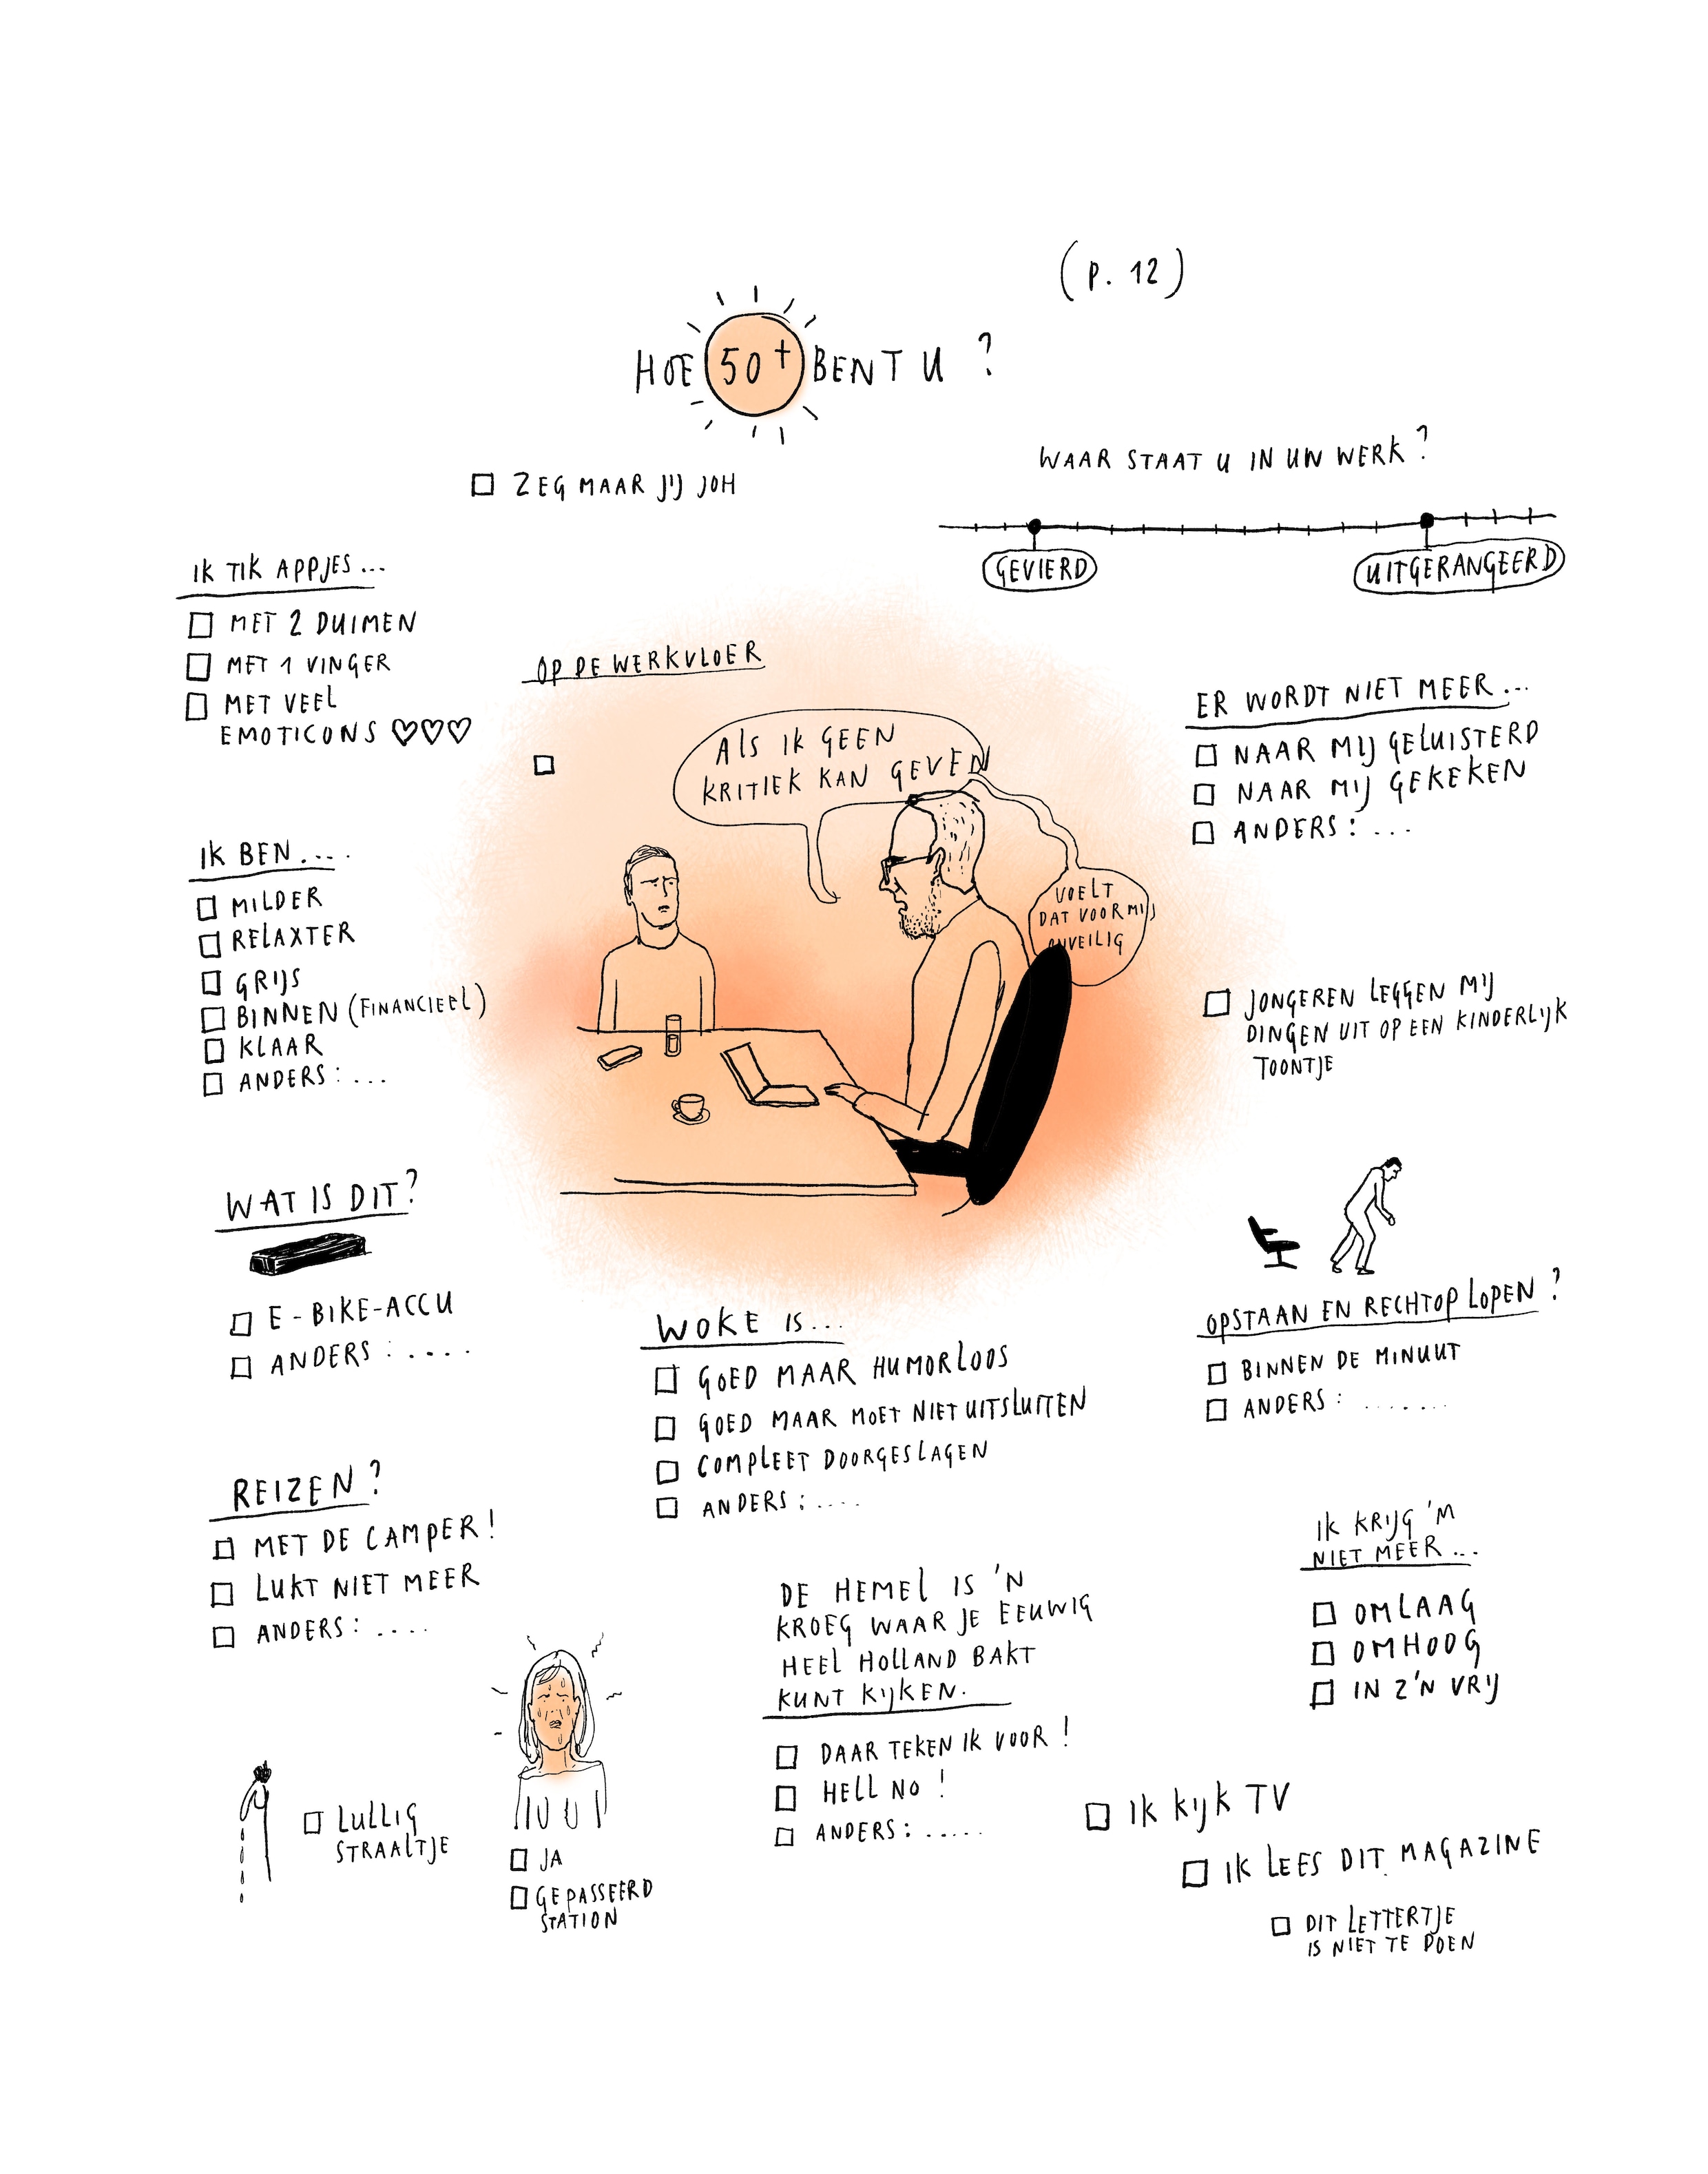 (P. 12)
HOE 50+ BENT U ?
ZEG MAAR JIJ JOH
WAAR STAAT U IN UW WERK ?
GEVIERD
UITGERANGEERD
IK TIK APPJES ...
MET 2 DUIMEN
MET 1 VINGER
MET VEEL
EMOTICONS ♡♡♡
OP DE WERKVLOER
ALS IK GEEN
KRITIEK KAN GEVEN
VOELT
DAT VOOR MIJ
ONVEILIG
ER WORDT NIET MEER ...
NAAR MIJ GELUISTERD
NAAR MIJ GEKEKEN
ANDERS : ...
IK BEN ....
MILDER
RELAXTER
GRIJS
BINNEN (FINANCIEEL)
KLAAR
ANDERS : ...
JONGEREN LEGGEN MIJ
DINGEN UIT OP EEN KINDERLIJK
TOONTJE
WAT IS DIT ?
E-BIKE-ACCU
ANDERS : ....
OPSTAAN EN RECHTOP LOPEN ?
BINNEN DE MINUUT
ANDERS : .......
WOKE IS ...
GOED MAAR HUMORLOOS
GOED MAAR MOET NIET UITSLUITEN
COMPLEET DOORGESLAGEN
ANDERS : ....
REIZEN ?
MET DE CAMPER !
LUKT NIET MEER
ANDERS : ....
IK KRIJG 'M
NIET MEER ...
OMLAAG
OMHOOG
IN Z'N VRIJ
DE HEMEL IS 'N
KROEG WAAR JE EEUWIG
HEEL HOLLAND BAKT
KUNT KIJKEN.
DAAR TEKEN IK VOOR !
HELL NO !
ANDERS : .....
LULLIG
STRAALTJE
JA
GEPASSEERD
STATION
IK KIJK TV
IK LEES DIT MAGAZINE
DIT LETTERTJE
IS NIET TE DOEN